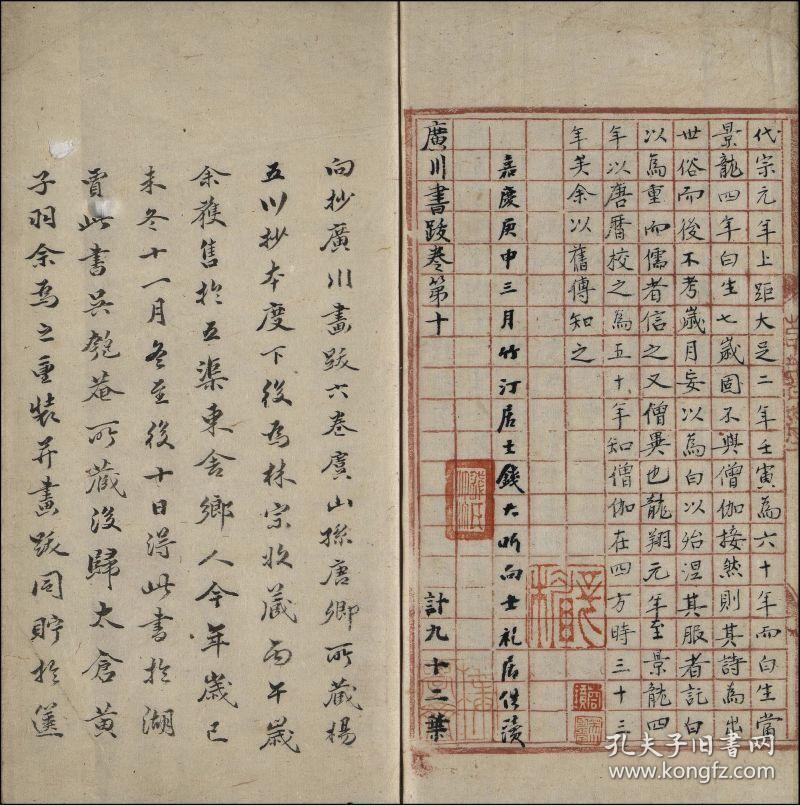 代宗元年上距大足二年壬寅為六十年而白生當
景龍四年白生七歲固不與僧伽接然則其詩為出
世俗而後不考歲月妄以為白以殆涅其服者託白
以為重而儒者信之又僧異也龍翔元年至景龍四
年以唐曆校之為五十年知僧伽在四方時三十三
年矣余以舊傳知之
嘉慶庚申三月竹汀居士錢大昕向士礼居借讀
廣川書跋卷第十
計九十二葉
向抄廣川畫跋六卷虞山孫唐卿所藏楊
五川抄本度下後為林宗收藏丙午歲
余獲售於五渠東舍鄉人今年歲已
未冬十一月冬至後十日得此書於湖
賈此書吳匏菴所藏後歸太倉黃
子羽余為之重裝并畫跋同貯於篋
孔夫子旧书网
www.kongfz.com